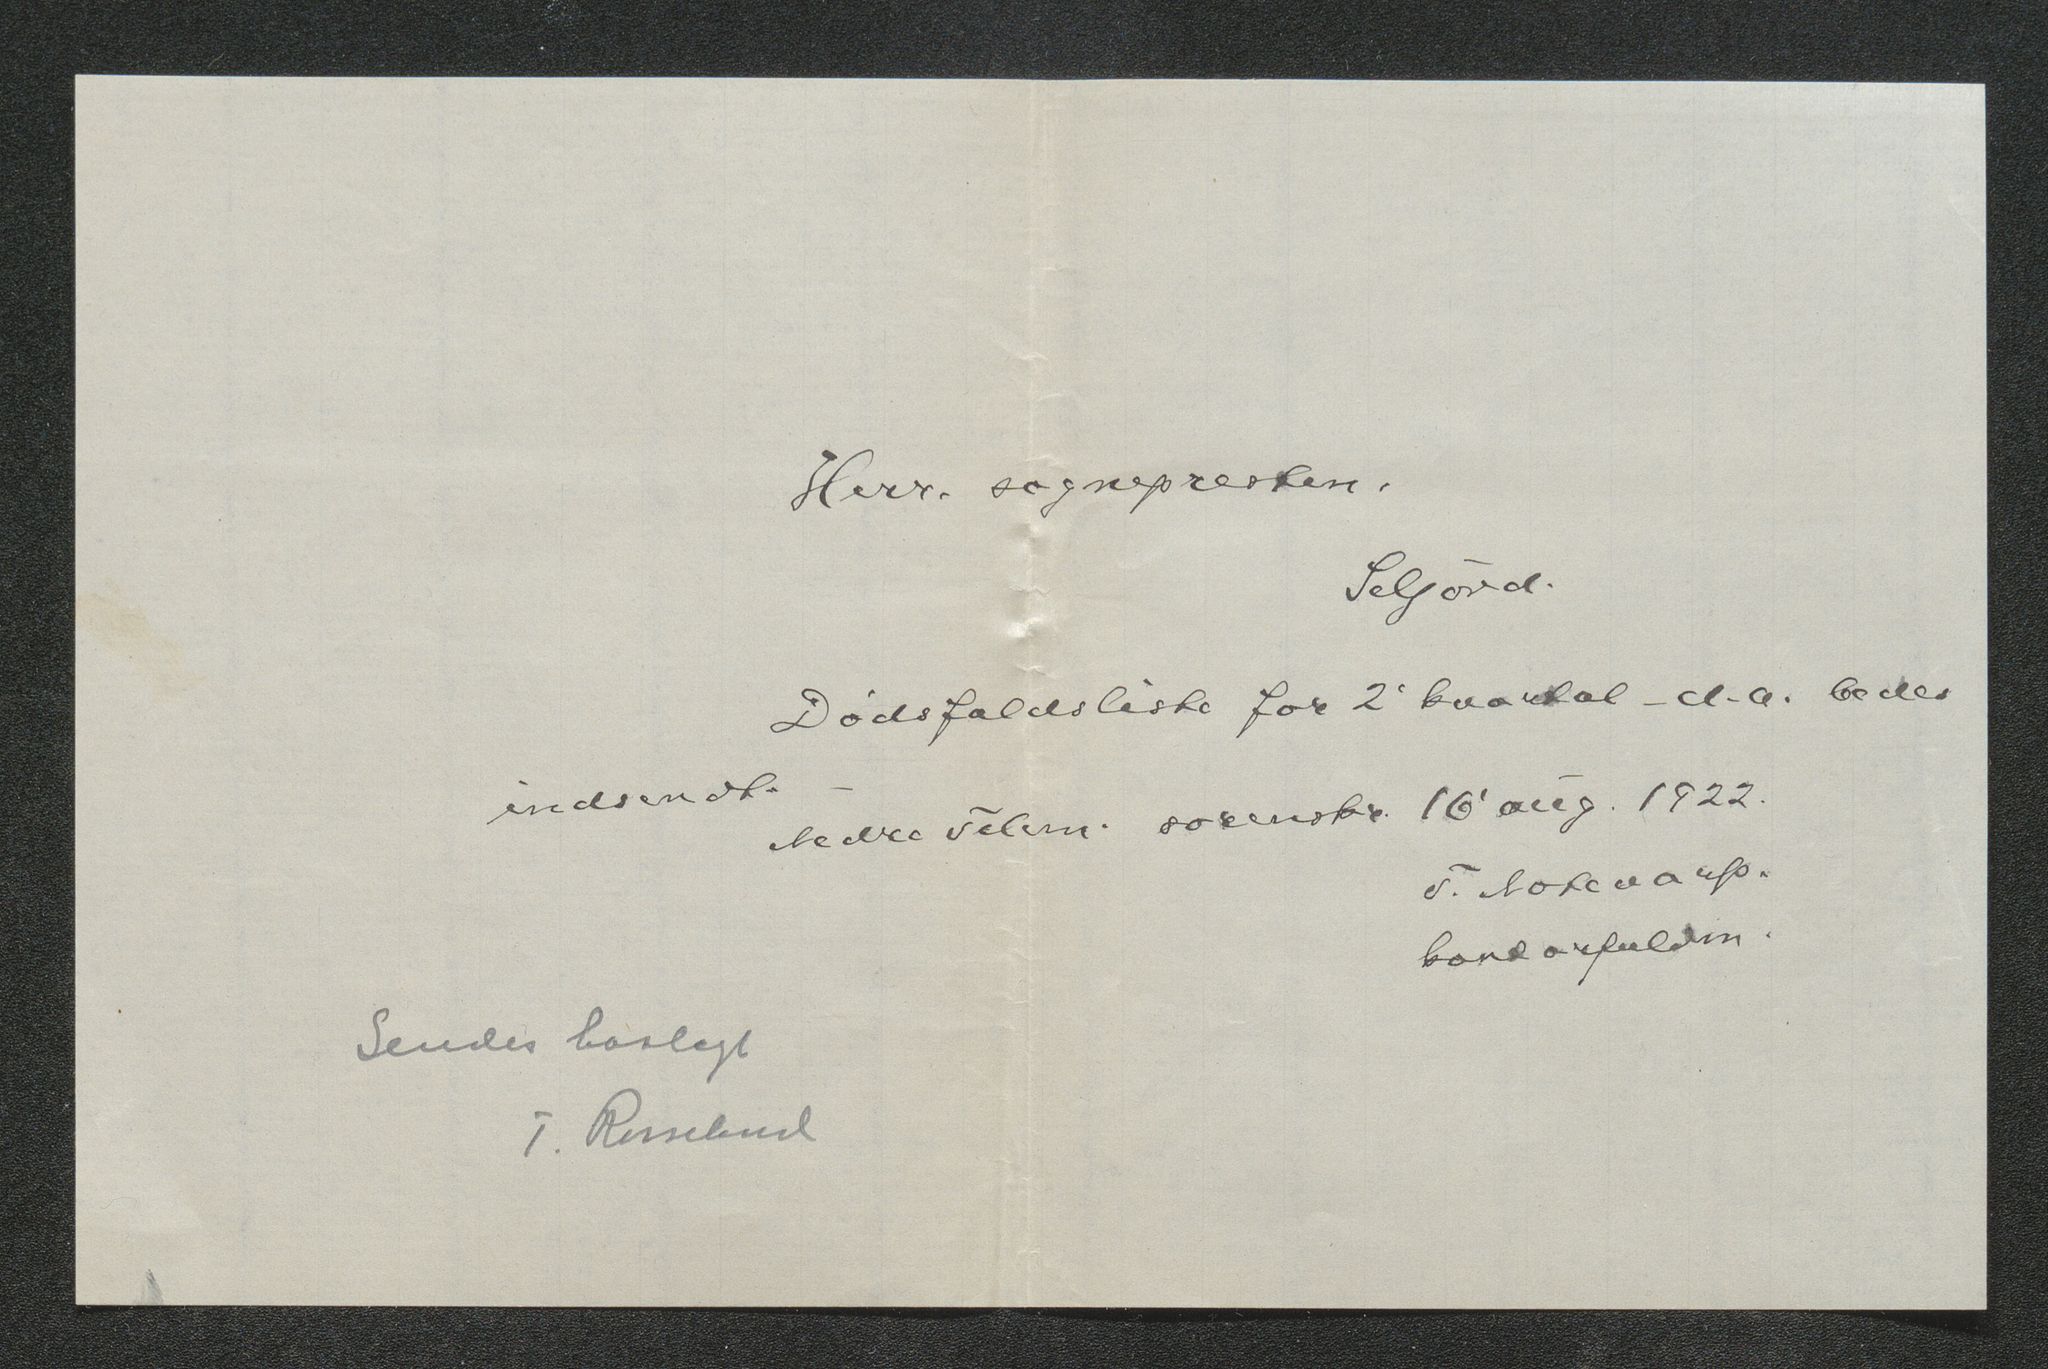 Herr. sognepresten.
Seljord.
Dødsfaldsliste for 2' kvartal - d.a. bedes
indsendt. -
Nedre Telem. sorenskr. 16' aug. 1922.
T. Notevarp.
kontorfuldm.
Sendes herlagt
T. Rosselund